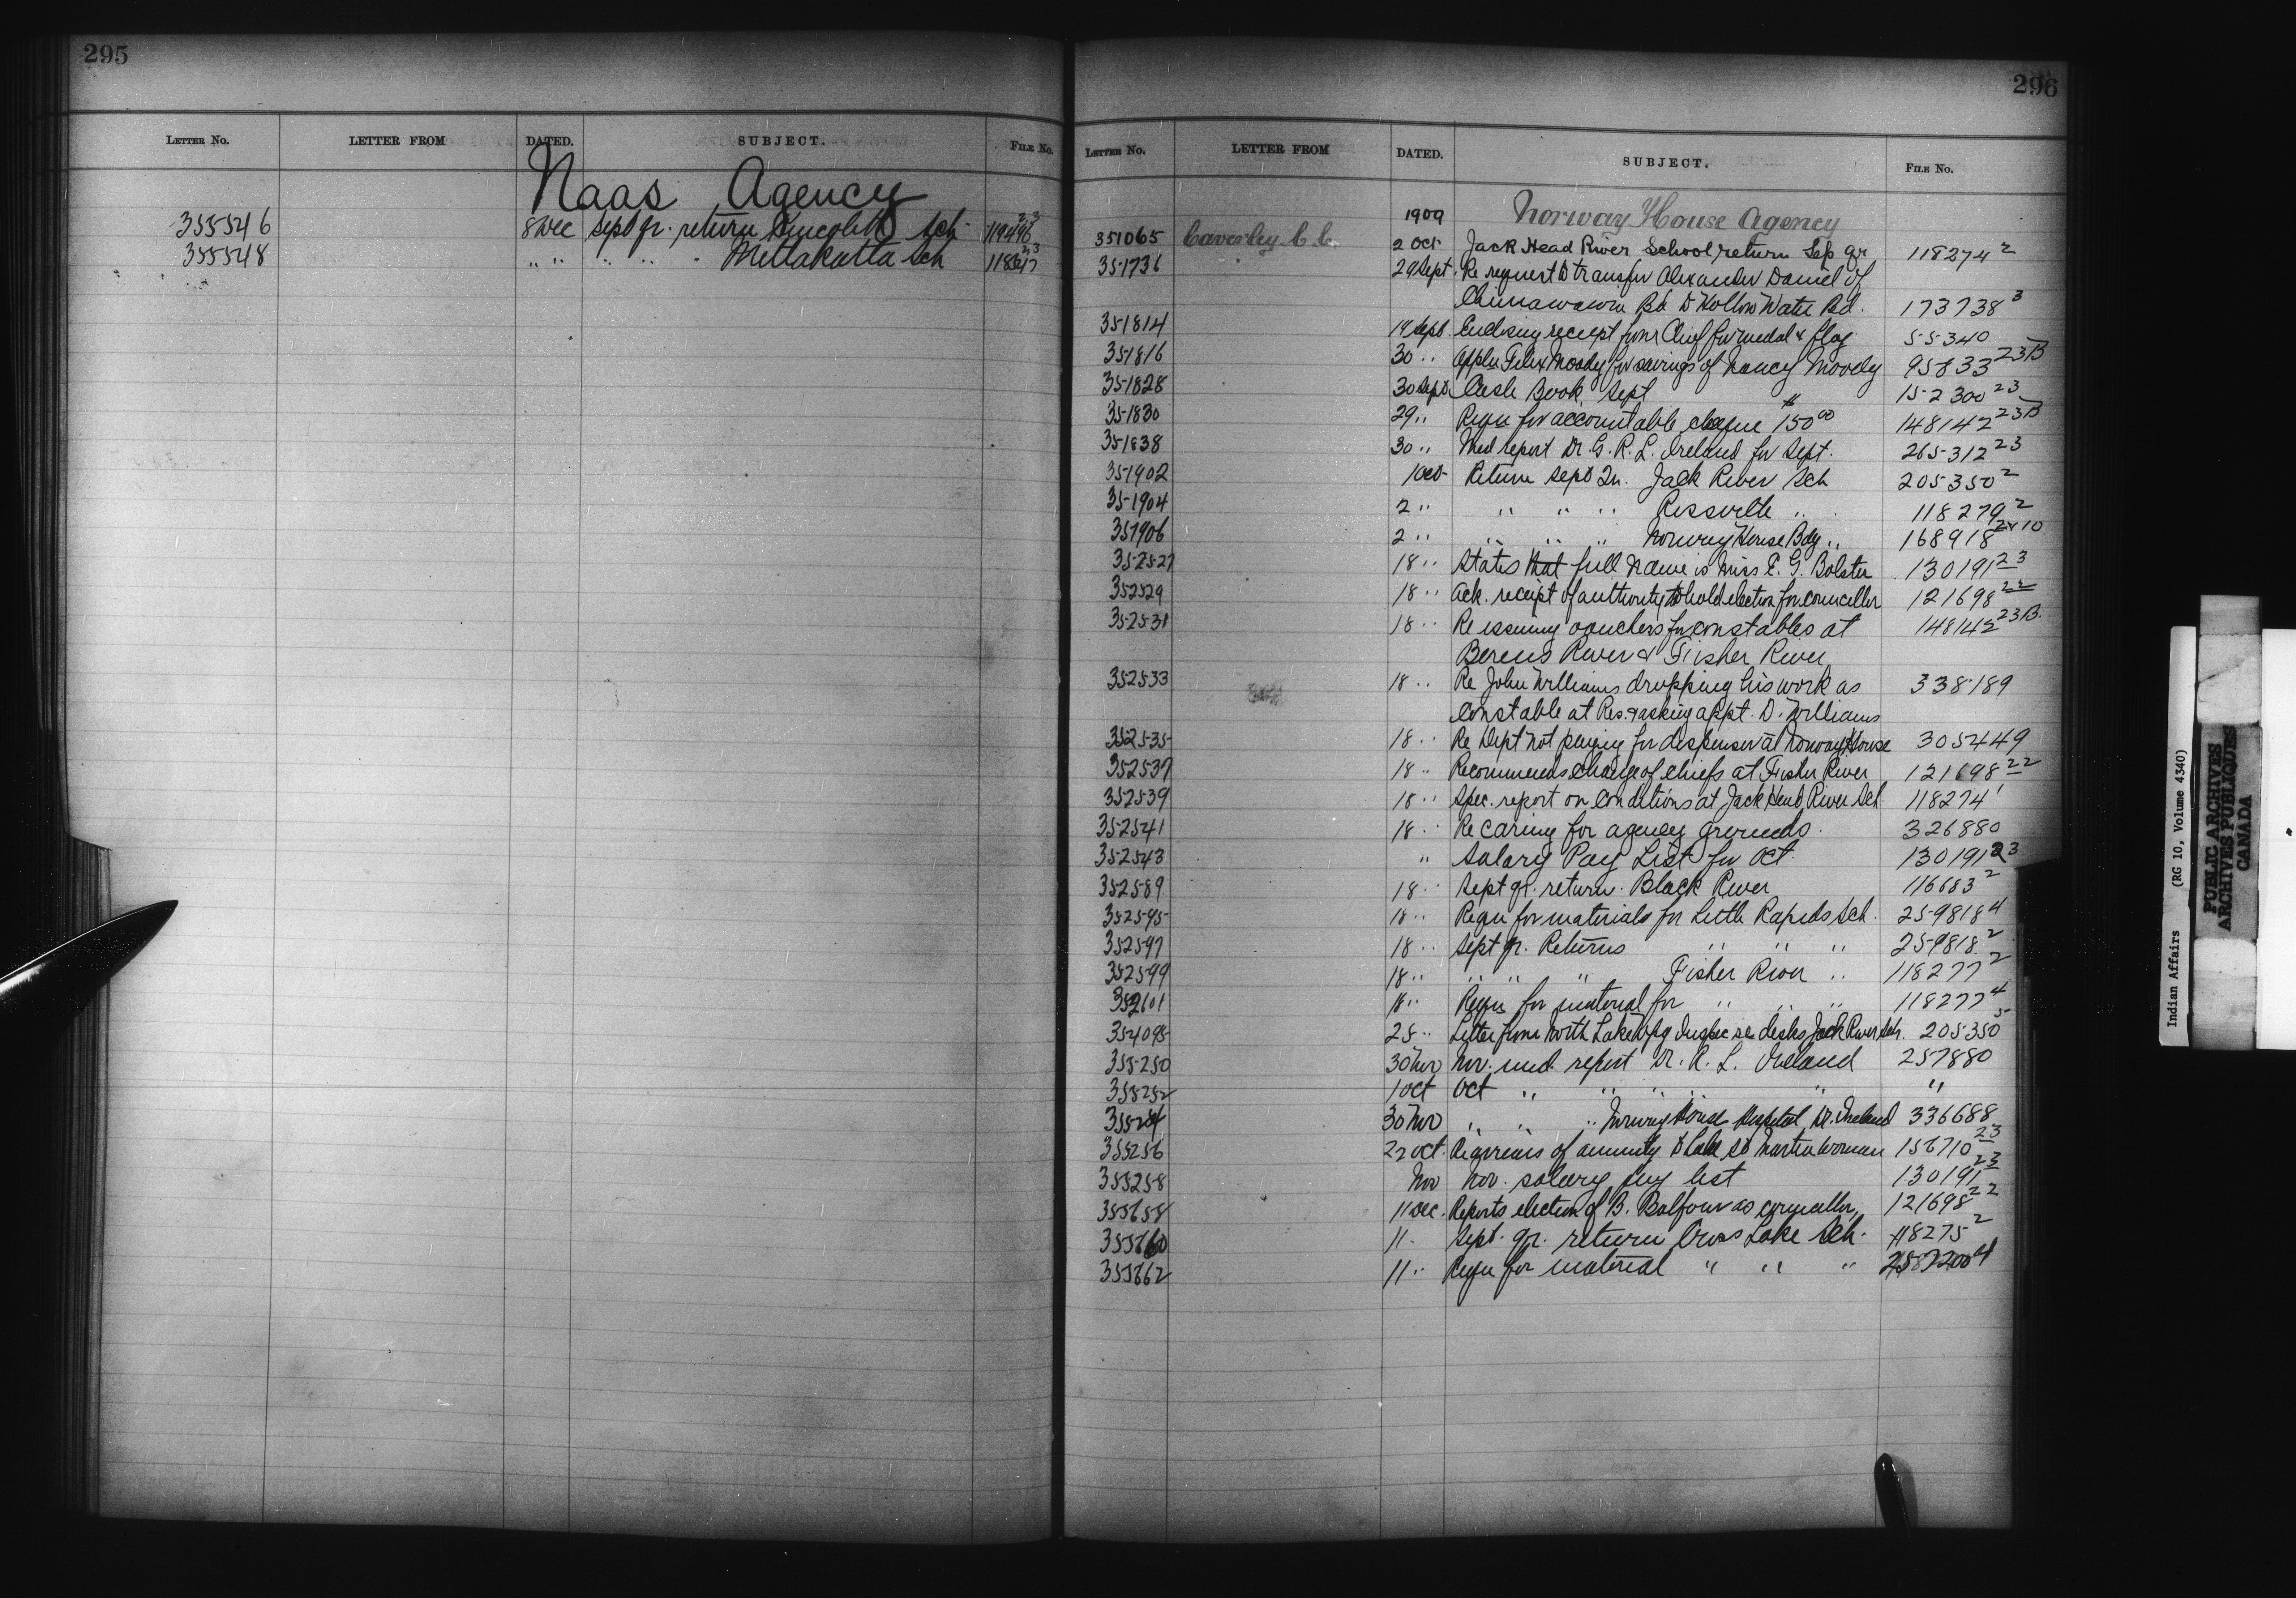 295
LETTER NO. LETTER FROM DATED. SUBJECT. FILE NO.
Naas Agency
355546 8 Dec Sept qr. return Kincolith Sch
355548 " " " " " Mettakatta Sch
296
LETTER NO. LETTER FROM DATED. SUBJECT. FILE NO.
1909 Norway House Agency
351065 Caverley C. C. 2 Oct Jack Head River School return Sep qr 118274 2
351736 29 Sept. Re request to transfer Alexander Daniel of
Chimawawin Bd to Hollow Water Bd. 173738 3
351814 14 Sept. Enclosing receipt from Chief for medal & flag 55340
351816 30 " Appln Felix Moody for savings of Nancy Moody 95833 23B
351828 30 Sept Cash Book, Sept 152300 23
351830 29 " Requ for accountable cheque $150 00 148142 23B
351838 30 " Med report Dr. G. R. L. Ireland for Sept. 265312 23
351902 1 Oct Return Sept Qr. Jack River Sch 205350 2
351904 2 " " " " Rossville " 118279 2
351906 2 " " " " Norway House Bdg " 168918 2 & 10
352527 18 " States that full name is Miss E. G. Bolster 130191 23
352529 18 " Ack. receipt of authority to hold election for councellor 121698 22
352531 18 " Re issuing vouchers for constables at 148142 23B.
Berens River & Fisher River
352533 18 " Re John Williams dropping his work as 338189
constable at Res. & asking appt. D. Williams
352535 18 " Re Dept not paying for dispenser at Norway House 305449
352537 18 " Recommends change of chiefs at Fisher River 121698 22
352539 18 " Spec. report on conditions at Jack Head River Sch. 118274 1
352541 18 " Re caring for agency grounds. 326880
352543 " Salary Pay List for Oct. 130191 23
352589 18 " Sept qr. return. Black River 116683 2
352595 18 " Requ for materials for Little Rapids Sch. 259818 4
352597 18 " Sept qr. Returns " " " 259818 2
352599 18 " " " " Fisher River " 118277 2
352601 18 " Requ for material for " " " 118277 4
354095 25 " Letter from North Lake Wpg Inspec re desks Jack River Sch. 205350 5
355250 30 Nov Nov. med. report Dr. R. L. Ireland 257880
355252 1 Oct Oct " " " " " "
355254 30 Nov " " " Norway House Hospital, Dr. Ireland 336688
355256 22 Oct. Re arrears of annuity to Lake St Martin woman 156710 23
355258 Nov Nov. salary pay list 130191 23
355658 11 Dec. Reports election of B. Balfour as councellor, 121698 22
355660 11 " Sept. qr. return Cross Lake Sch. 118275 2
355662 11 " Requ for material " " "
Indian Affairs (RG 10, Volume 4340)
PUBLIC ARCHIVES
ARCHIVES PUBLIQUES
CANADA